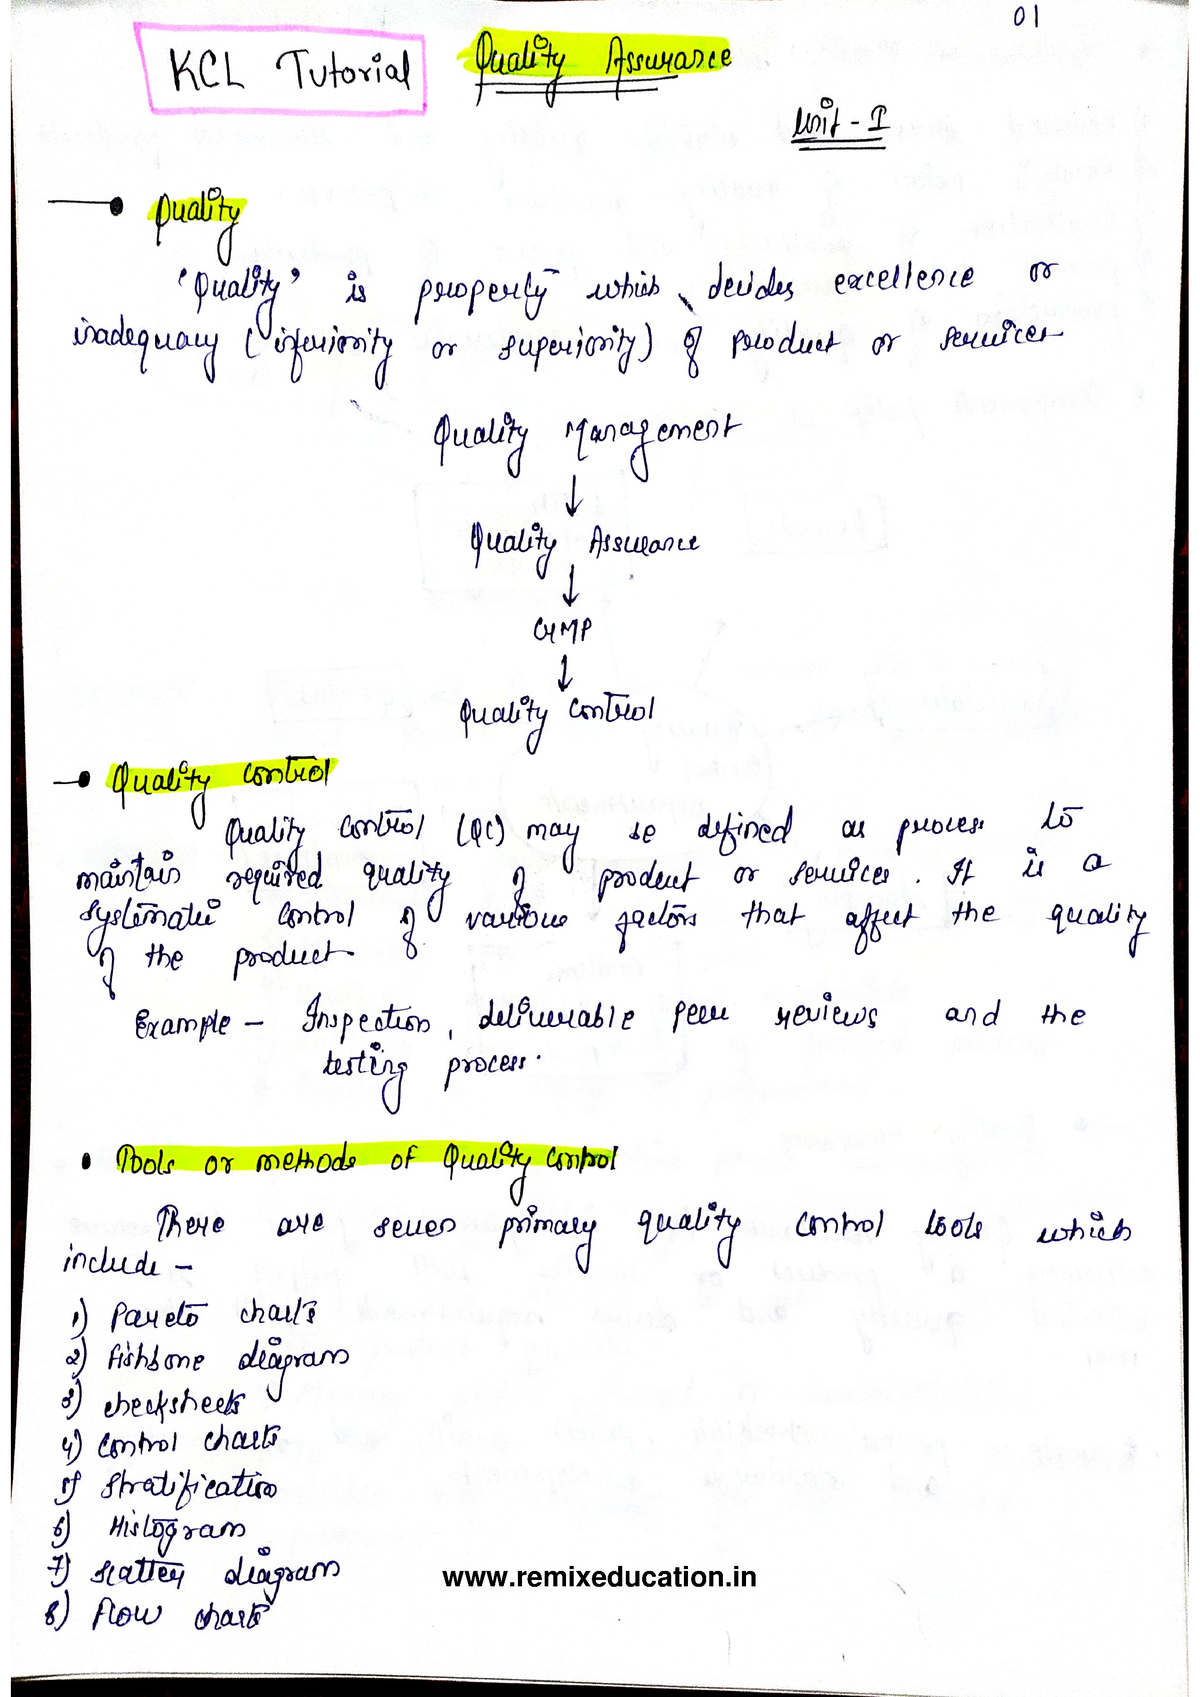 01
KCL Tutorial Quality Assurance
Unit - I
Quality
'Quality' is property which decides excellence or
inadequacy (inferiority or superiority) of product or services
Quality Management
↓
Quality Assurance
↓
GMP
↓
Quality Control
Quality control
Quality control (QC) may be defined as process to
maintain required quality of product or services. It is a
systematic control of various factors that affect the quality
of the product.
Example - Inspection, deliverable peer reviews and the
testing process.
• Tools or methods of Quality control
There are seven primary quality control tools which
include -
1) Pareto charts
2) Fishbone diagram
3) checksheets
4) control charts
5) Stratification
6) Histogram
7) scatter diagram
www.remixeducation.in
8) Flow charts